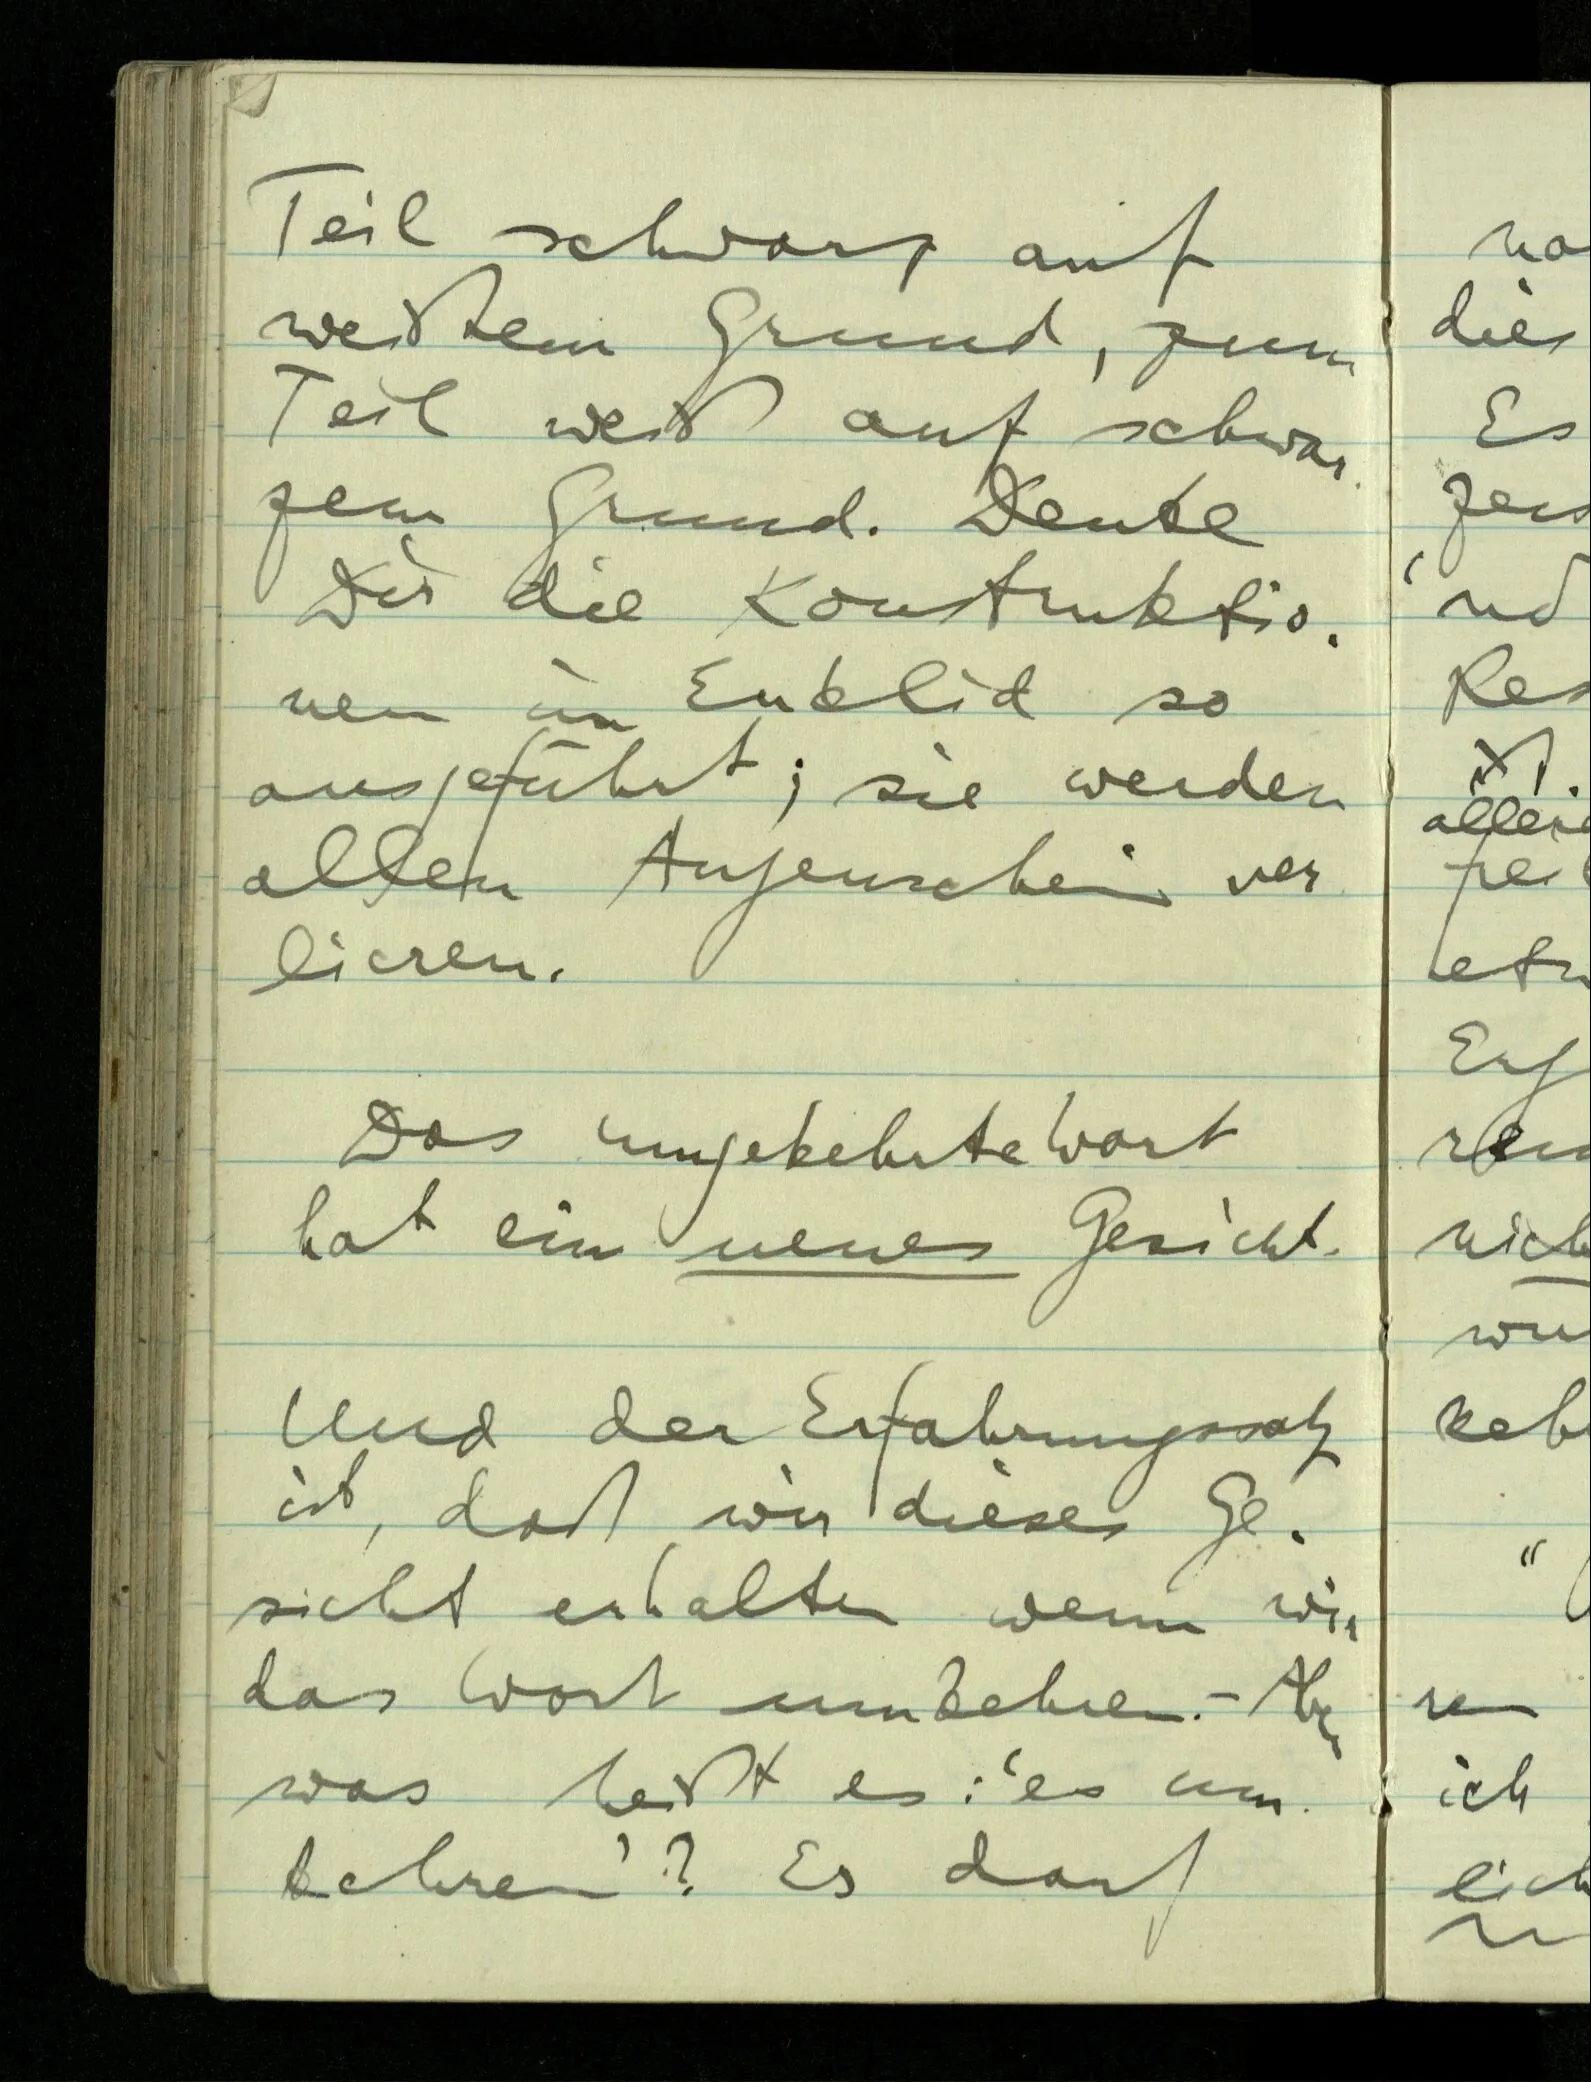 Teil schwarz auf
weißem Grund, zum
Teil weiß auf schwar-
zem Grund. Denke
Dir die Konstruktio-
nen im Euklid so
ausgeführt; sie werden
allen Augenschein ver
lieren.
Das umgekehrte Wort
hat ein neues Gesicht.
Und der Erfahrungssatz
ist, daß wir dieses Ge-
sicht erhalten wenn wir
das Wort umkehren. – Aber
was heißt es: 'es um-
kehren'? Es darf
dies
Es
allei
nich
ich